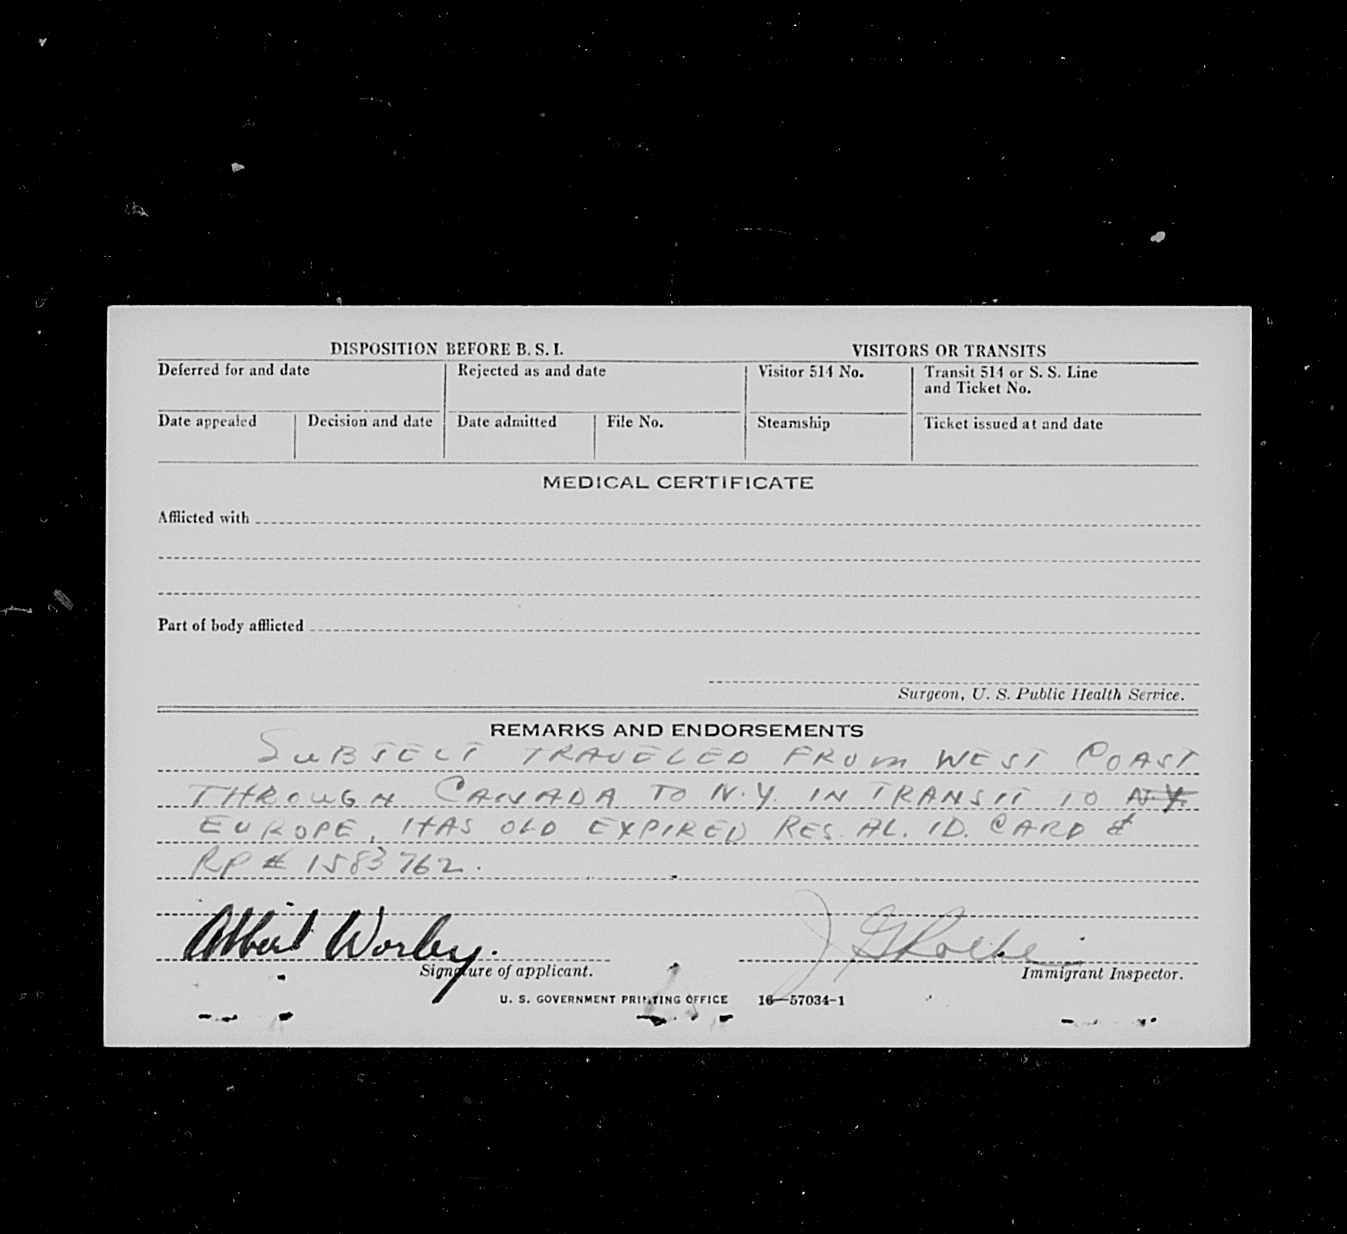 DISPOSITION BEFORE B. S. I. VISITORS OR TRANSITS
Deferred for and date Rejected as and date Visitor 514 No. Transit 514 or S. S. Line
and Ticket No.
Date appealed Decision and date Date admitted File No. Steamship Ticket issued at and date
MEDICAL CERTIFICATE
Afflicted with
Part of body afflicted
Surgeon, U. S. Public Health Service.
REMARKS AND ENDORSEMENTS
SUBJECT TRAVELED FROM WEST COAST
THROUGH CANADA TO N.Y. IN TRANSIT TO N.Y.
EUROPE. HAS OLD EXPIRED RES. AL. ID. CARD &
RP # 1583762.
Albert Worley.
Signature of applicant. Immigrant Inspector.
U. S. GOVERNMENT PRINTING OFFICE 16—57034-1